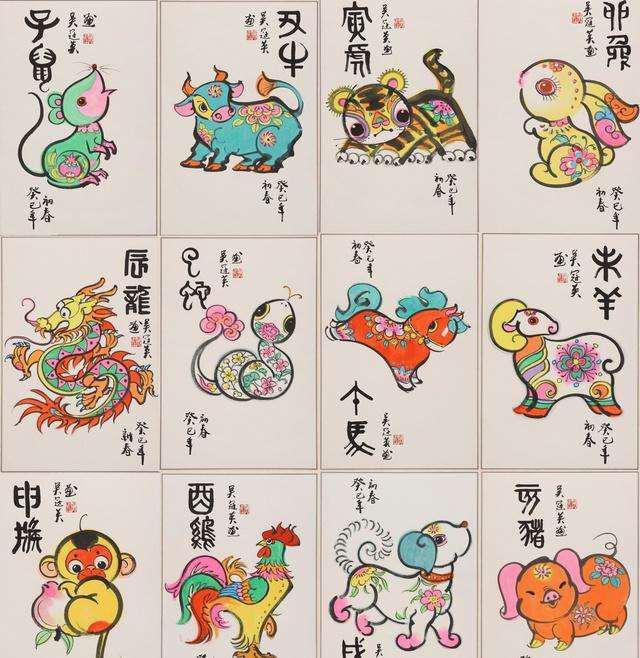 子鼠
吴冠英
画
癸巳年
初春
丑牛
吴冠英
画
癸巳年
初春
寅虎
吴冠英画
癸巳年
初春
卯兔
吴冠英画
癸巳年
初春
辰龍
吴冠英
画
癸巳年
新春
巳蛇
吴冠英
画
癸巳年
初春
癸巳年
初春
午馬
吴冠英画
未羊
吴冠英
画
癸巳年
初春
申猴
吴冠英
画
酉鷄
吴冠英画
癸巳年
初春
戌
吴冠英
亥猪
吴冠英画